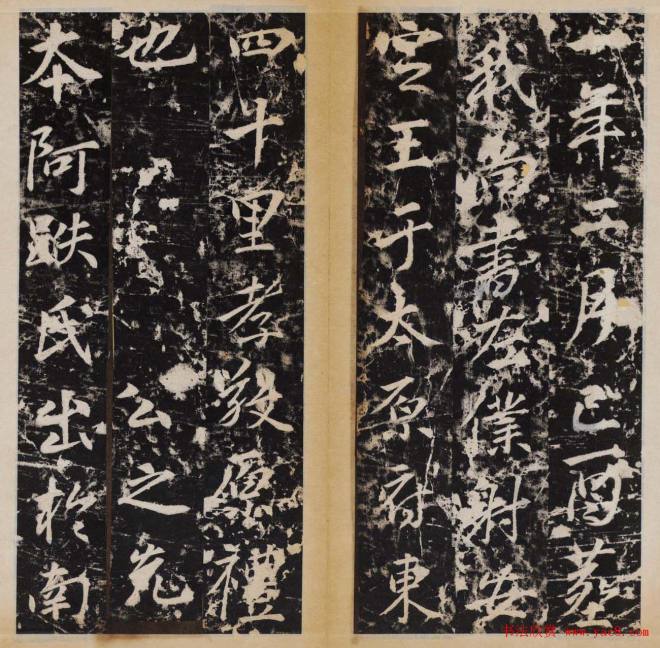 一年二月己酉葬
我尚書左僕射安
定王于太原府東
四十里孝敬原禮
也　公之先
本阿跌氏出於南
书法欣赏 www.yac8.com